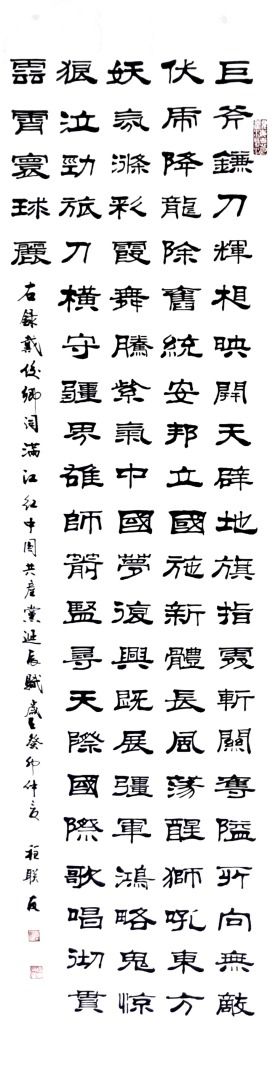 巨斧鐮刀輝相映開天辟地旗指處斬關奪隘所向無敵
伏虎降龍除舊統安邦立國施新體長風蕩醒獅吼東方
妖氛滌彩霞舞騰紫氣中國夢復興既展彊軍鴻略鬼惊
狼泣勁旅刀橫守疆界雄師箭豎尋天際國際歌唱徹貫
雲霄寰球麗
右錄戴俊卿詞滿江紅中國共產黨延長賦歲癸卯仲夏 程聯友